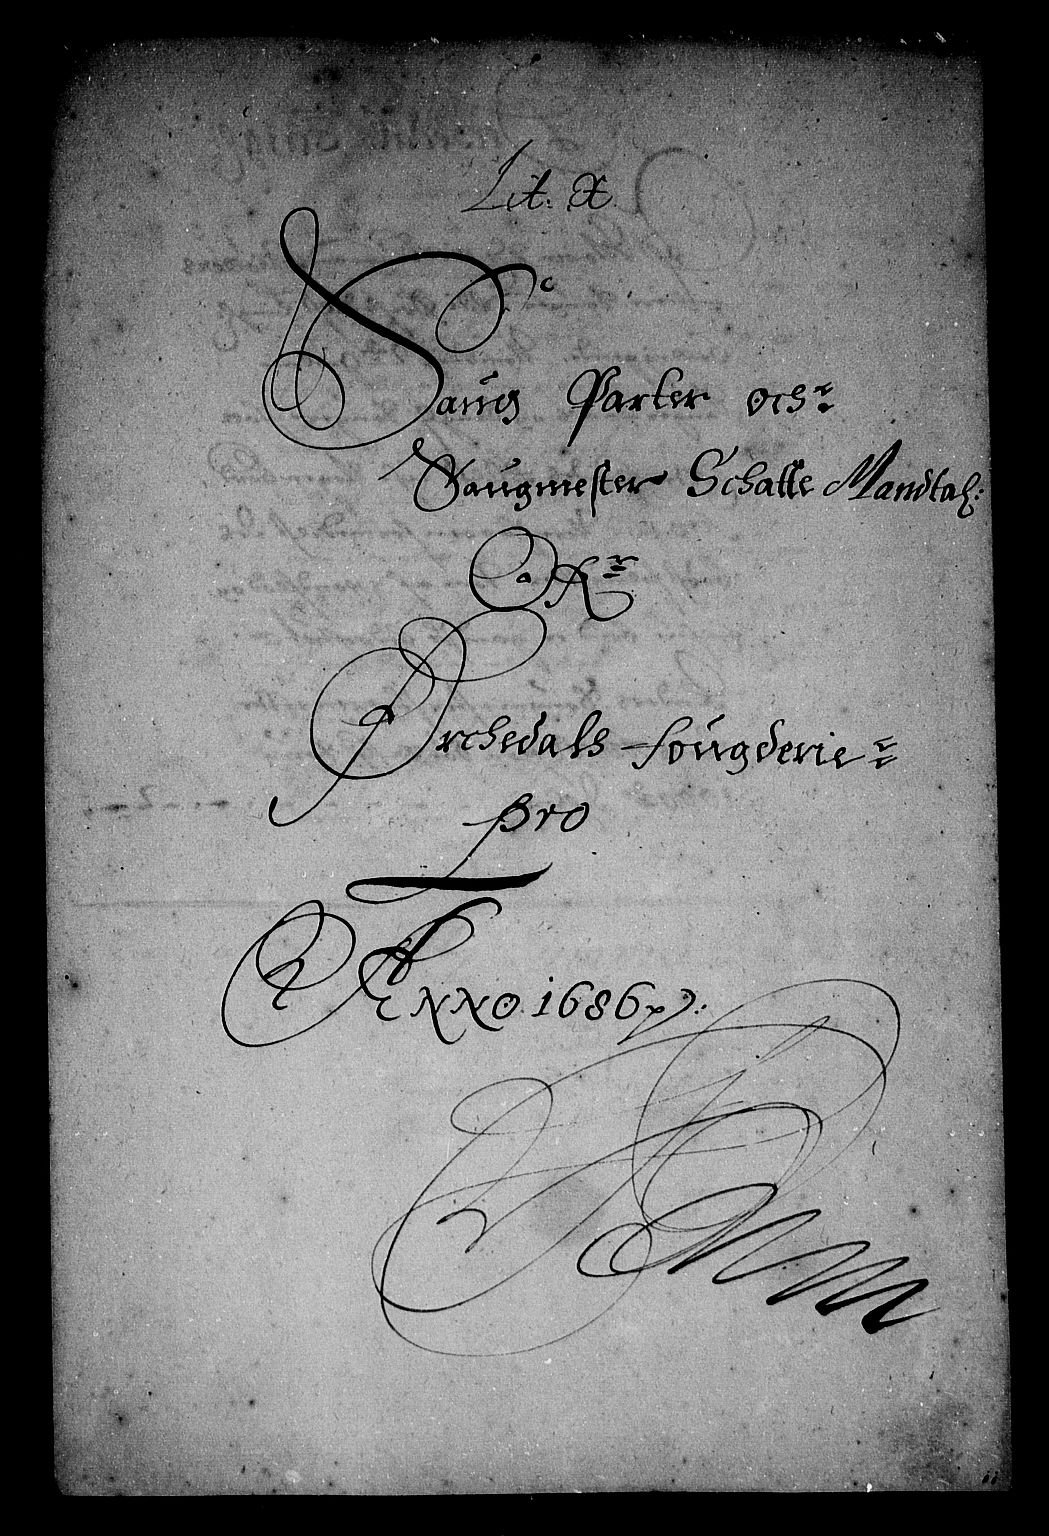 Lit. X
Saug Parter och
Saugmester Schatte Mandtal:
Af
Orchedals fougderie
pro
ANNO 1686